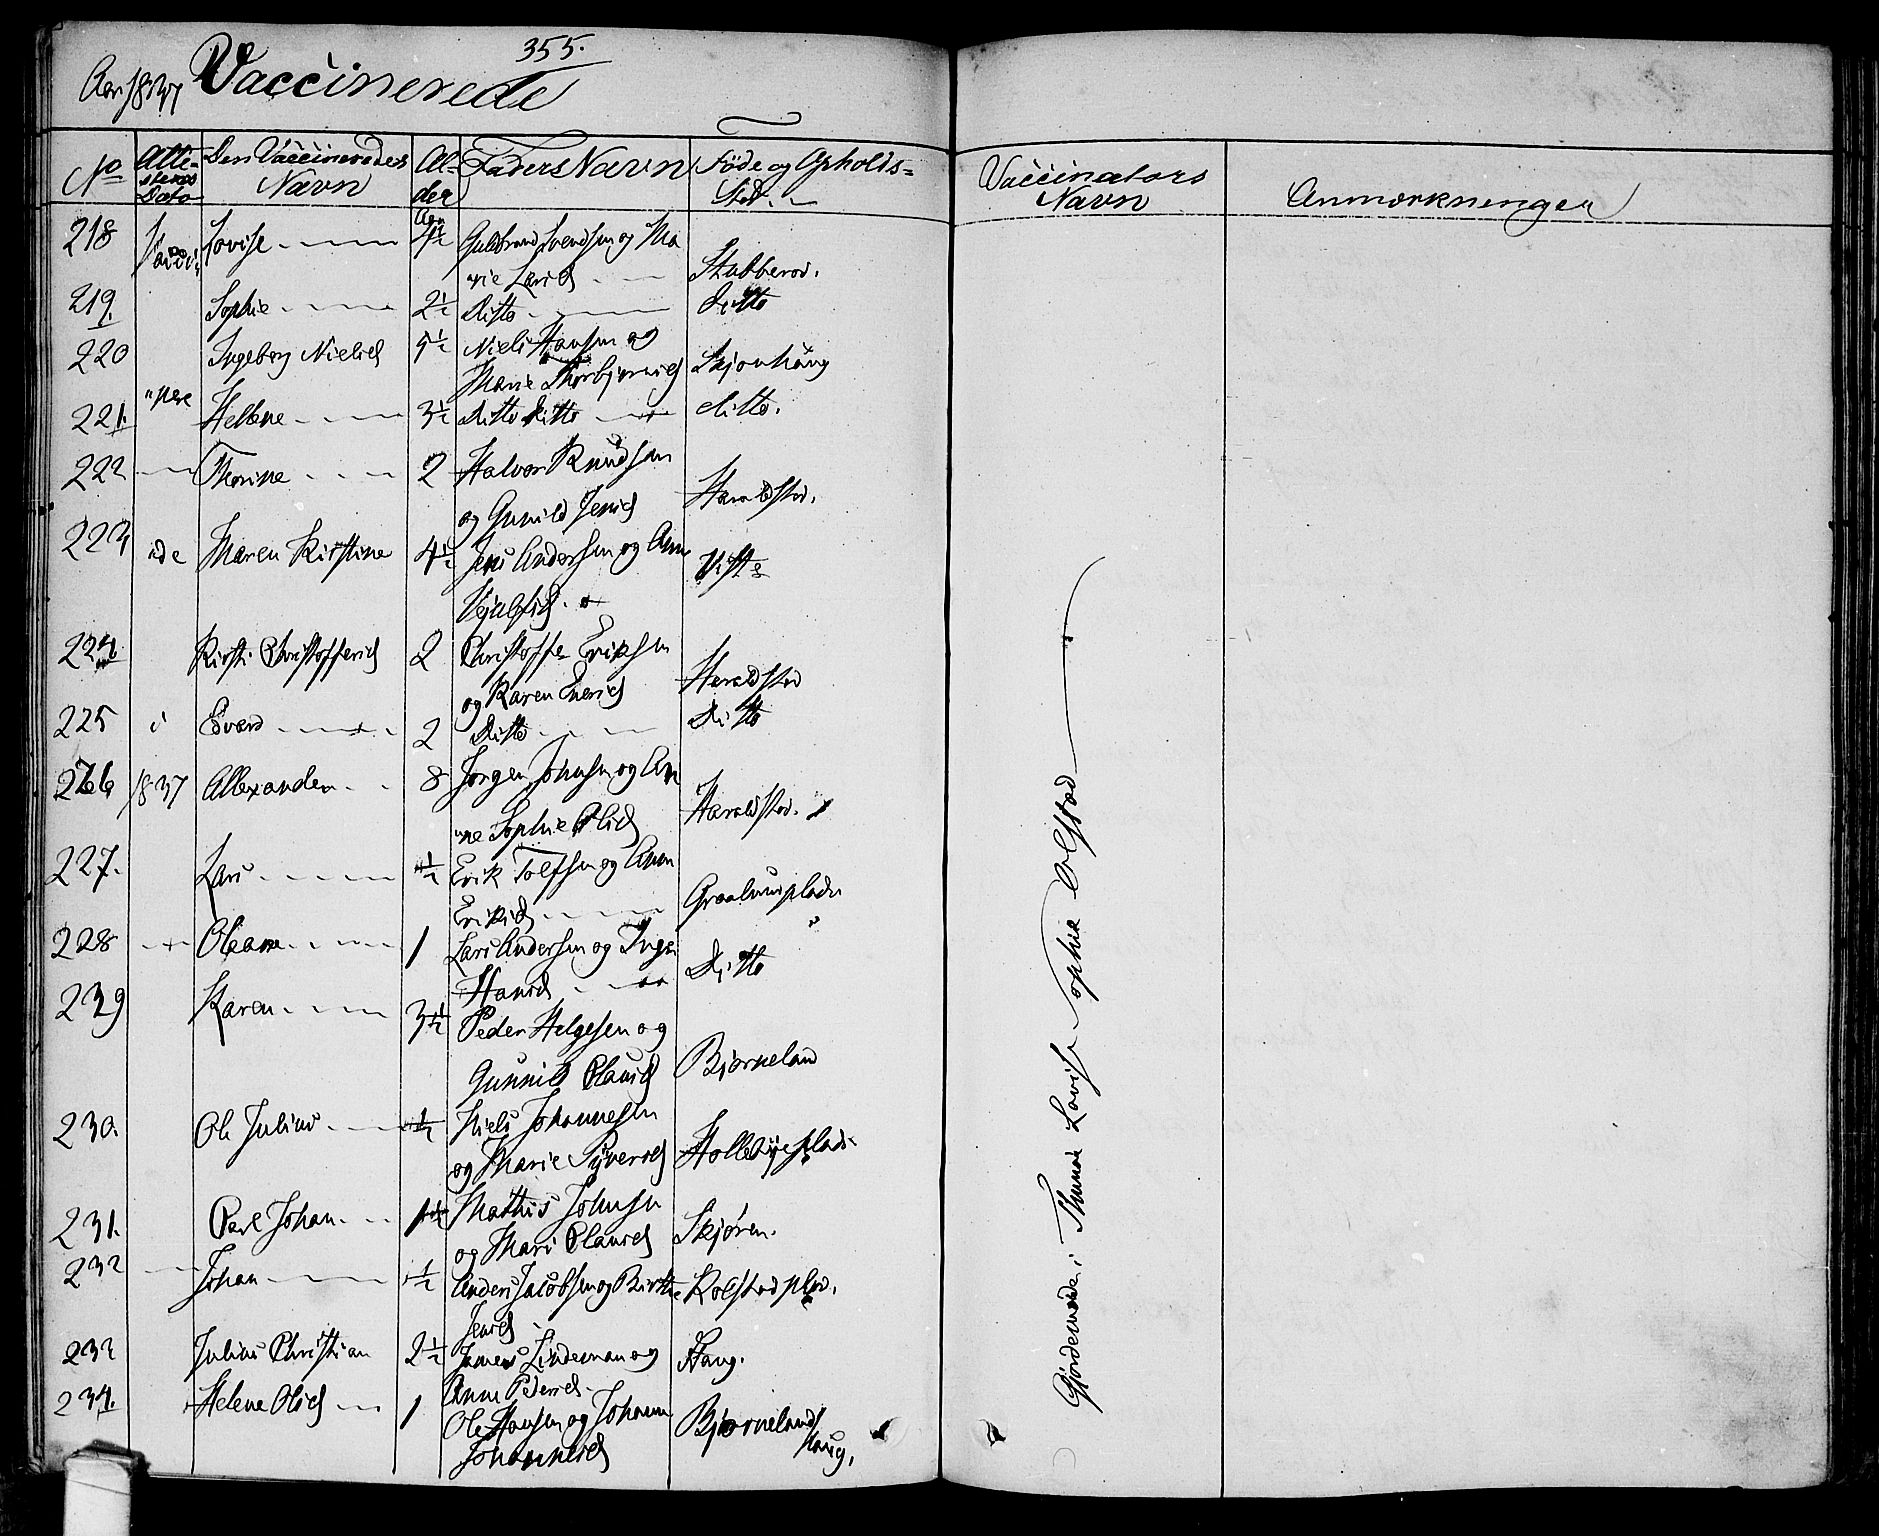 355.
Aar 1837 Vaccinerede
No Atte- Den Vaccineredes Al- Faders Navn Føde og Opholds=
stens Navn der Sted.
Dato Aar
218 Lovise 4½ Guldbrand Svendsen og Ma
rie Larsd Stubberød.
219. Sophie 2½ Ditto Ditto
220 Ingeborg Nielsd 5½ Niels Hansen og
Marie Thorbjørnsd Skjønhaug
221. Hellene 3½ Ditto Ditto ditto.
222 Thorine 2 Halvor Knudsen
og Gunild Jensd Haraldstad.
223 Maren Kirstine 4½ Jens Andersen og Ann
224. Kirsti Christoffersd 2 Christoffer Eriksen
og Karen Haraldstad
225 i Edvard 2 Ditto Ditto
226 1837 Allexander 8 Jørgen Johnsen og An
ne Sophie Olsd Haraldstad.
227. Lars ½ Erik Tolfsen og Ann
Eriksd Graalumsplads
228 Oleane 1 Lars Andersen og Inge
Hansd Ditto
239 Karen 3½ Peder Helgesen og
Gunnild Olausd Bjørneland
230. Ole Julius ½ Niels Johannesen
og Marie Syversd Hollebyeplads
231. Carl Johan 1½ Mathis Johnsen
og Mari Olausd Skjøren.
232 Johan ½ Anders Jacobsen og Birthe Kolstadplad.
Jensd
233 Julius Christian 2½ James Lindeman og Haug.
Anne Pedersd
234. Helene Olsd 1 Ole Hansen og Johann
Johannesd Bjørneland
haug,
Vaccinators Anmærkninger
Navn
Gjordemoder i Thunøe Lovise Sophia Olstad